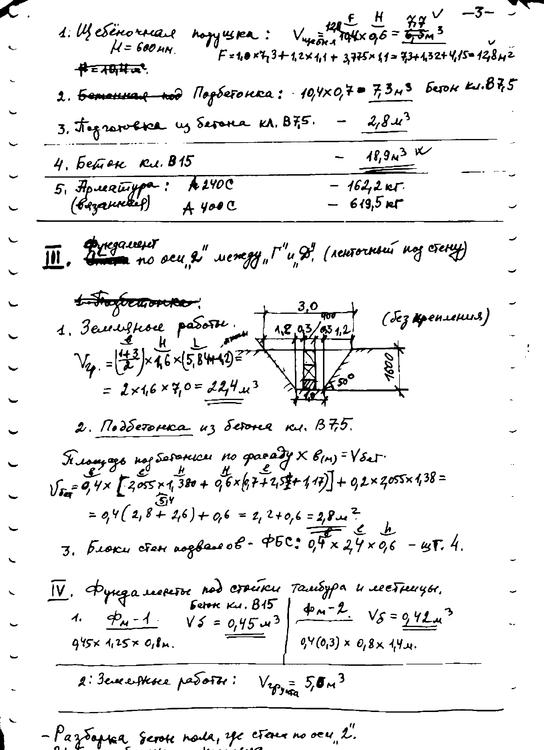 -3-
1. Щебёночная подушка: Vщебня = 10,4 × 0,6 = 7,7
12,8 F H 6,3м³
H = 600мм. F = 1,0×7,3 + 1,2×1,1 + 3,775×1,1 = 7,3+1,32+4,15 = 12,8м²
F = 10,4м².
2. Бетонная под Подбетонка: 10,4×0,7 = 7,3м³ Бетон кл. В7,5
3. Подготовка из бетона кл. В7,5. - 2,8м³
4. Бетон кл. В15 - 18,9м³
5. Арматура: А240С - 162,2 кг.
(вязанная) А400С - 619,5 кг.
III. фундамент по оси „2" между „Г" и „Д". (ленточный под стену)
1. Подбетонка.
1. Земляные работы. (без крепления)
3,0
400
1,2 0,3 0,3 1,2
Vгр. = (1+3/2) × 1,6 × (5,84+1,2) =
= 2×1,6×7,0 = 22,4м³
50° 1600
1,8
2. Подбетонка из бетона кл. В7,5.
Площадь подбетонки по фасаду × в(м) = Vбет.
Vбет = 0,4 × [2,055×1,380 + 0,6×(0,7+2,54+1,17)] + 0,2×2,055×1,38 =
= 0,4(2,8 + 2,6) + 0,6 = 2,2+0,6 = 2,8м³
5,4
3. Блоки стен подвалов - ФБС: 0,4 × 2,4 × 0,6 - шт. 4.
IV. Фундаменты под стойки тамбура и лестницы.
Бетон кл. В15
1. Фм-1 Vб = 0,45м³ Фм-2 Vб = 0,42м³
0,45 × 1,25 × 0,8м. 0,4(0,3) × 0,8 × 1,4м.
2: Земляные работы: Vгрунта = 5,6м³
- Разборка бетон пола, где стена по оси „2".